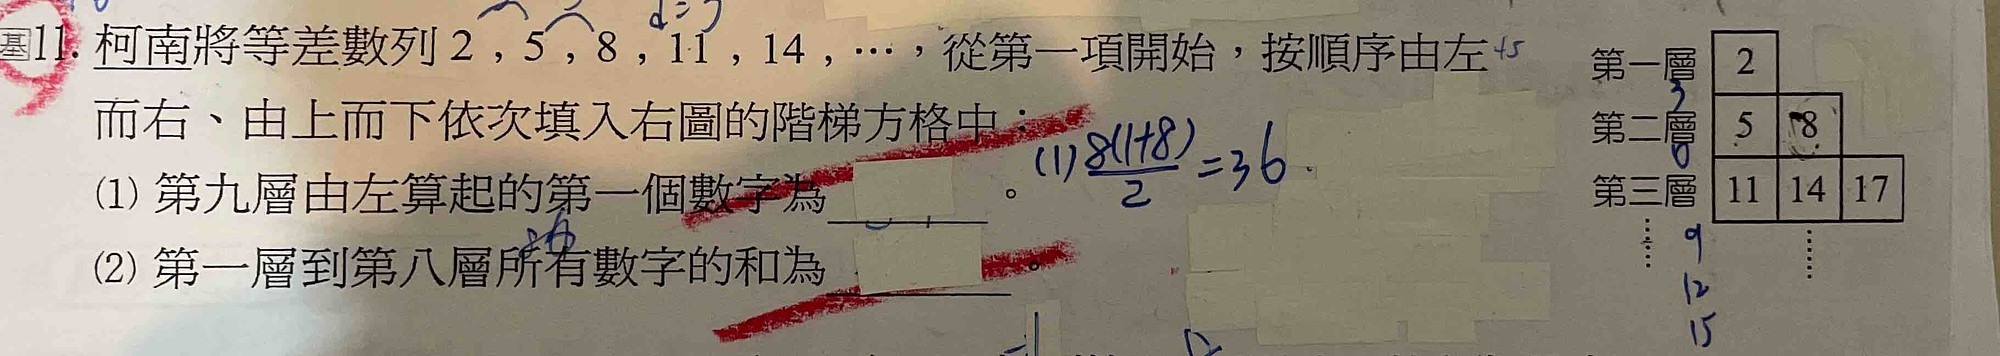 基11. 柯南將等差數列 2 , 5 , 8 , 11 , 14 , …，從第一項開始，按順序由左
而右、由上而下依次填入右圖的階梯方格中：
⑴ 第九層由左算起的第一個數字為 。
⑵ 第一層到第八層所有數字的和為 。
(1) 8(1+8)/2 = 36
第一層 2
第二層 5 8
第三層 11 14 17
⋮ ⋮
9
12
15